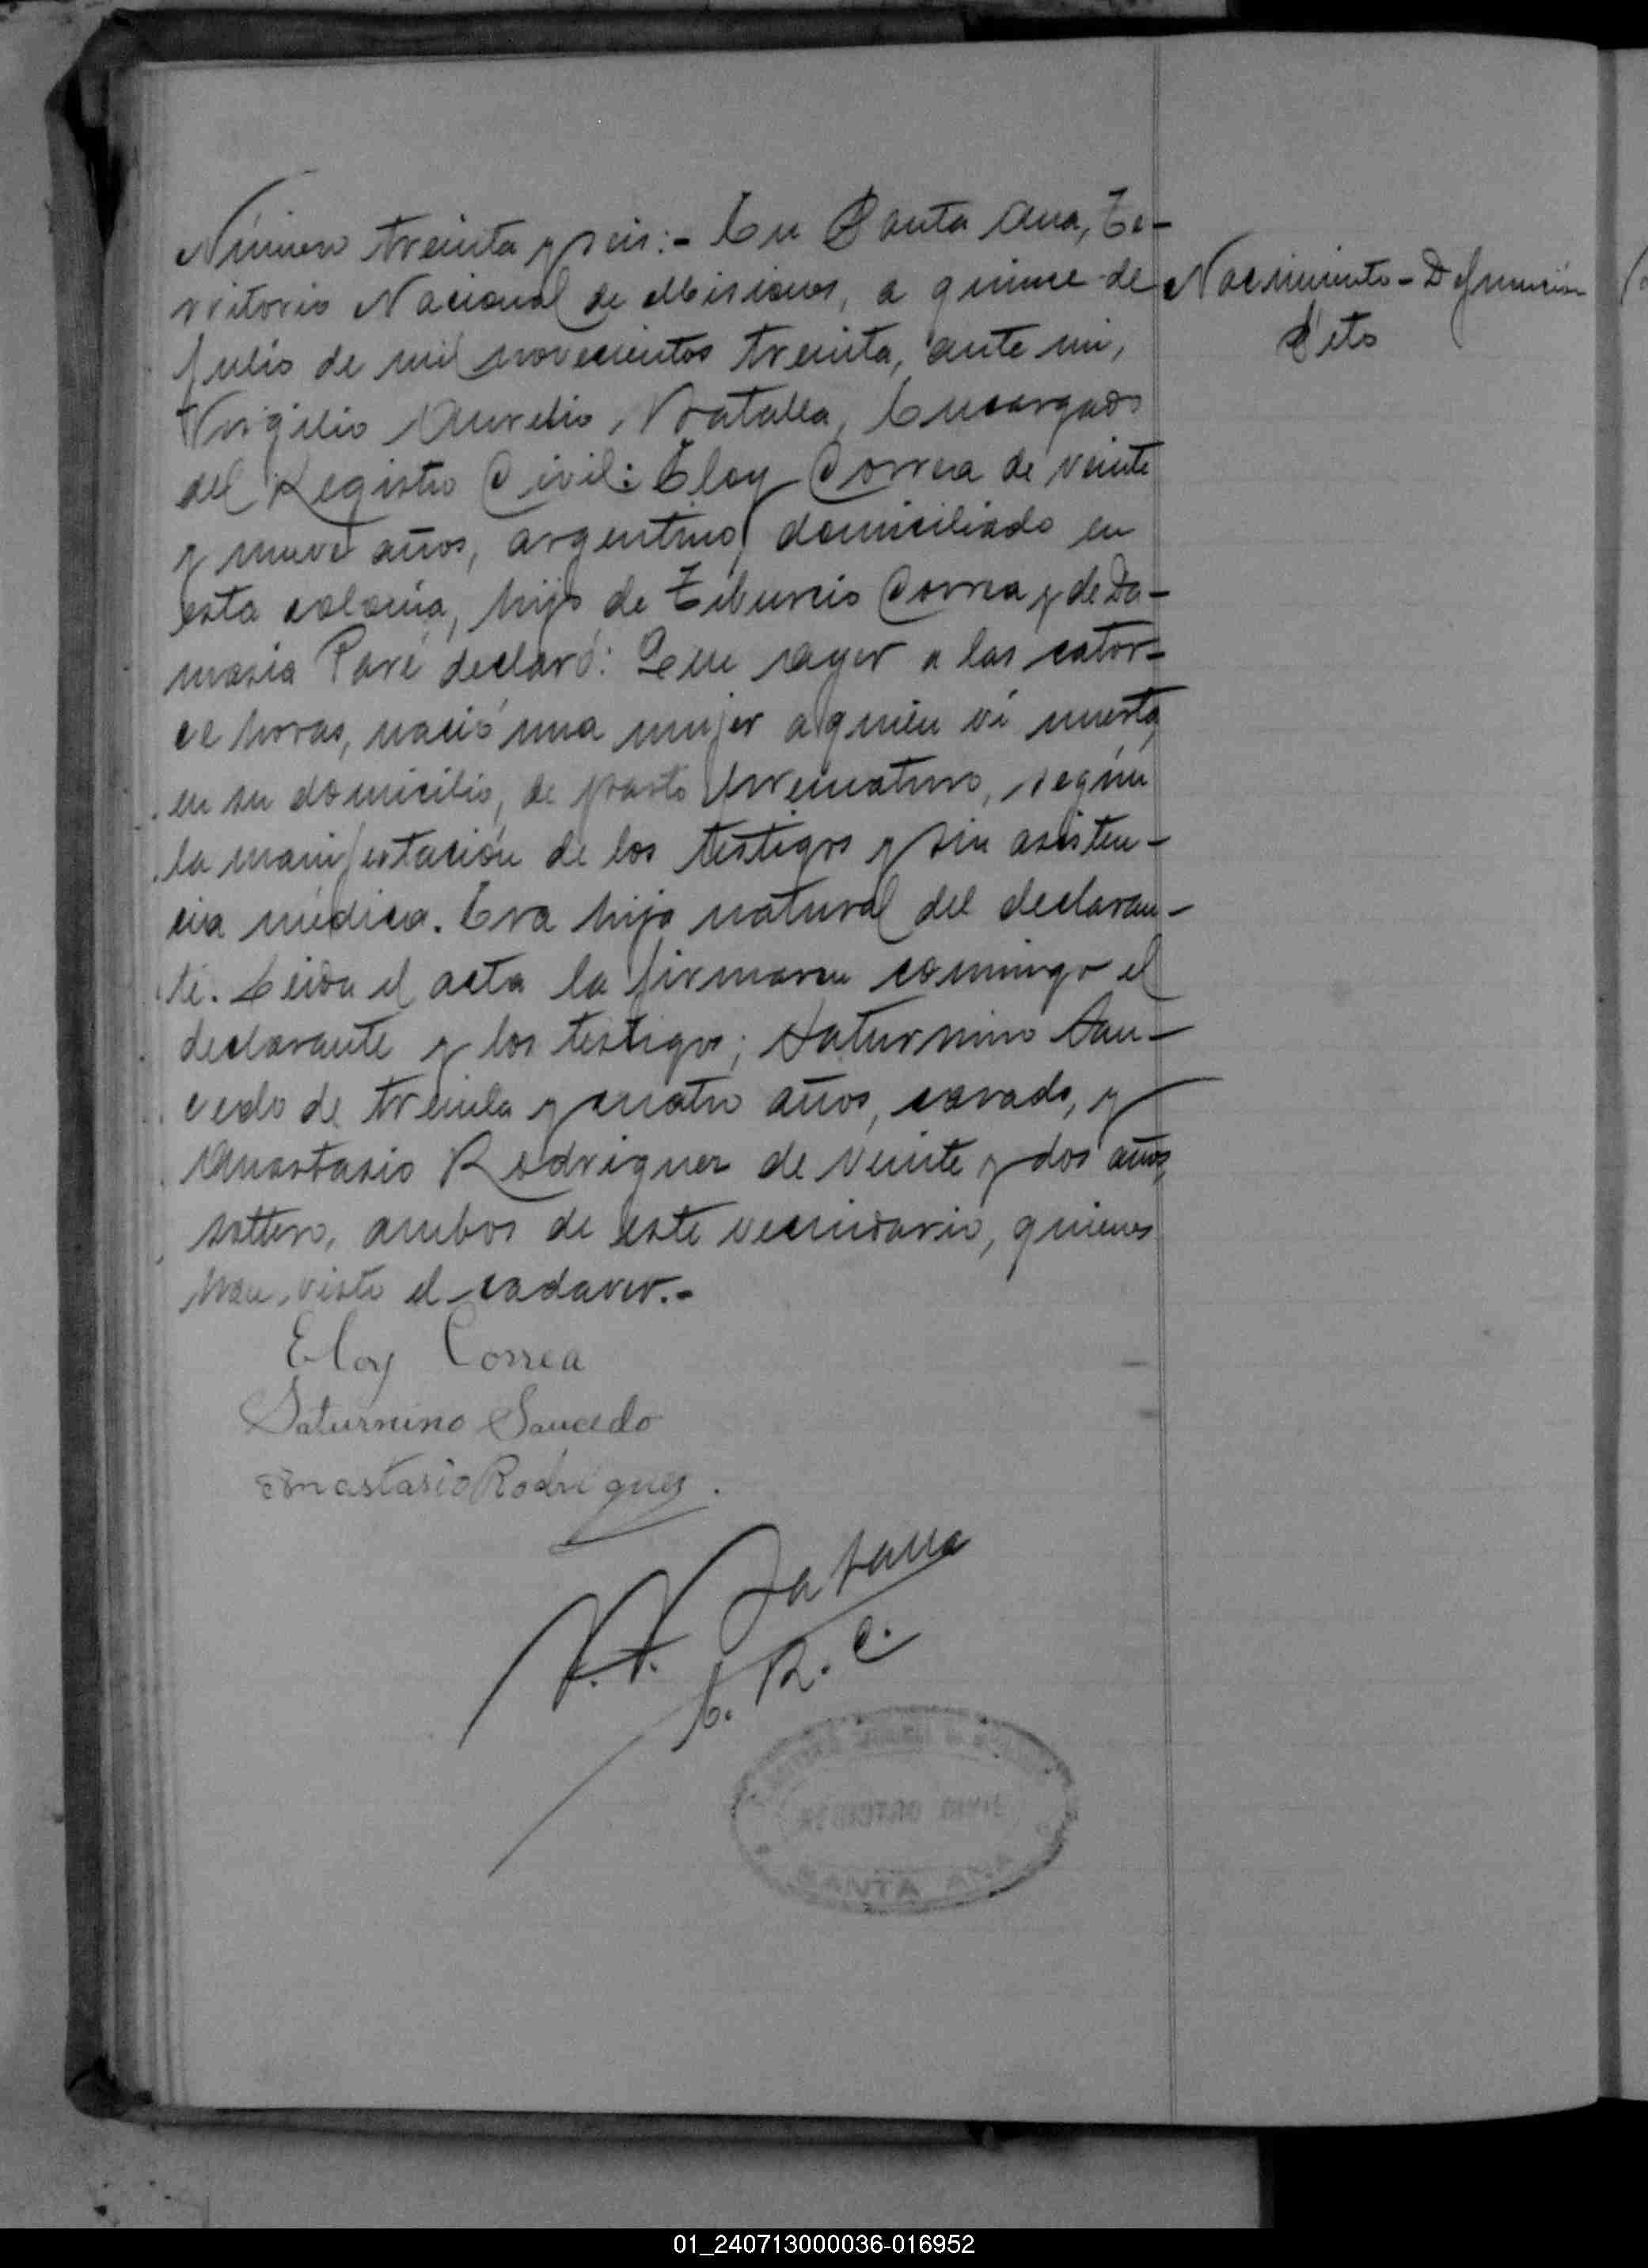 Número treinta y seis:- En Santa Ana, Te-
rritorio Nacional de Misiones, a quince de
julio de mil novecientos treinta, ante mi,
Virgilio Aurelio Batalla, Encargado
del Registro Civil: Eloy Correa de veinte
y nueve años, argentino, domiciliado en
esta colonia, hijo de Tiburcio Correa y de Da-
masia Paré declaró: Que ayer a las cator-
ce horas, nació una mujer a quien vi muerta,
en su domicilio, de parto prematuro, según
la manifestación de los testigos y sin asisten-
cia médica. Era hija natural del declaran-
te. Leida el acta la firmaron conmigo el
declarante y los testigos; Saturnino Sau-
cedo de treinta y cuatro años, casado, y
Anastasio Rodriguez de veinte y dos años,
soltero, ambos de este vecindario, quienes
han visto el cadaver.-
Nacimiento - Defunción
Feto
Eloy Correa
Saturnino Saucedo
Anastasio Rodriguez.
V. A. Batalla
E. R. C.
REGISTRO CIVIL
SANTA ANA
01_240713000036-016952